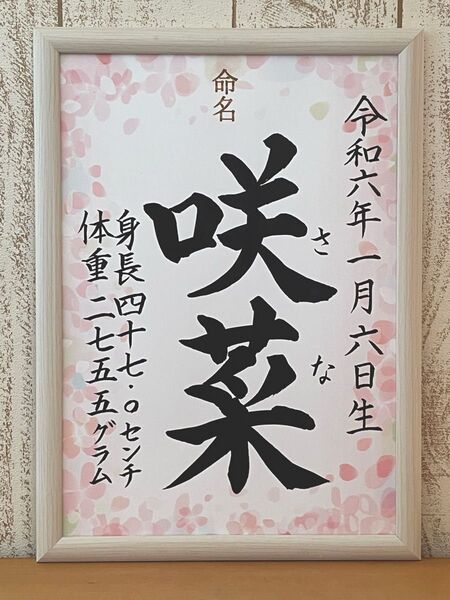 令和六年一月六日生
命名
咲菜
さな
身長四十七.〇センチ
体重二七五五グラム